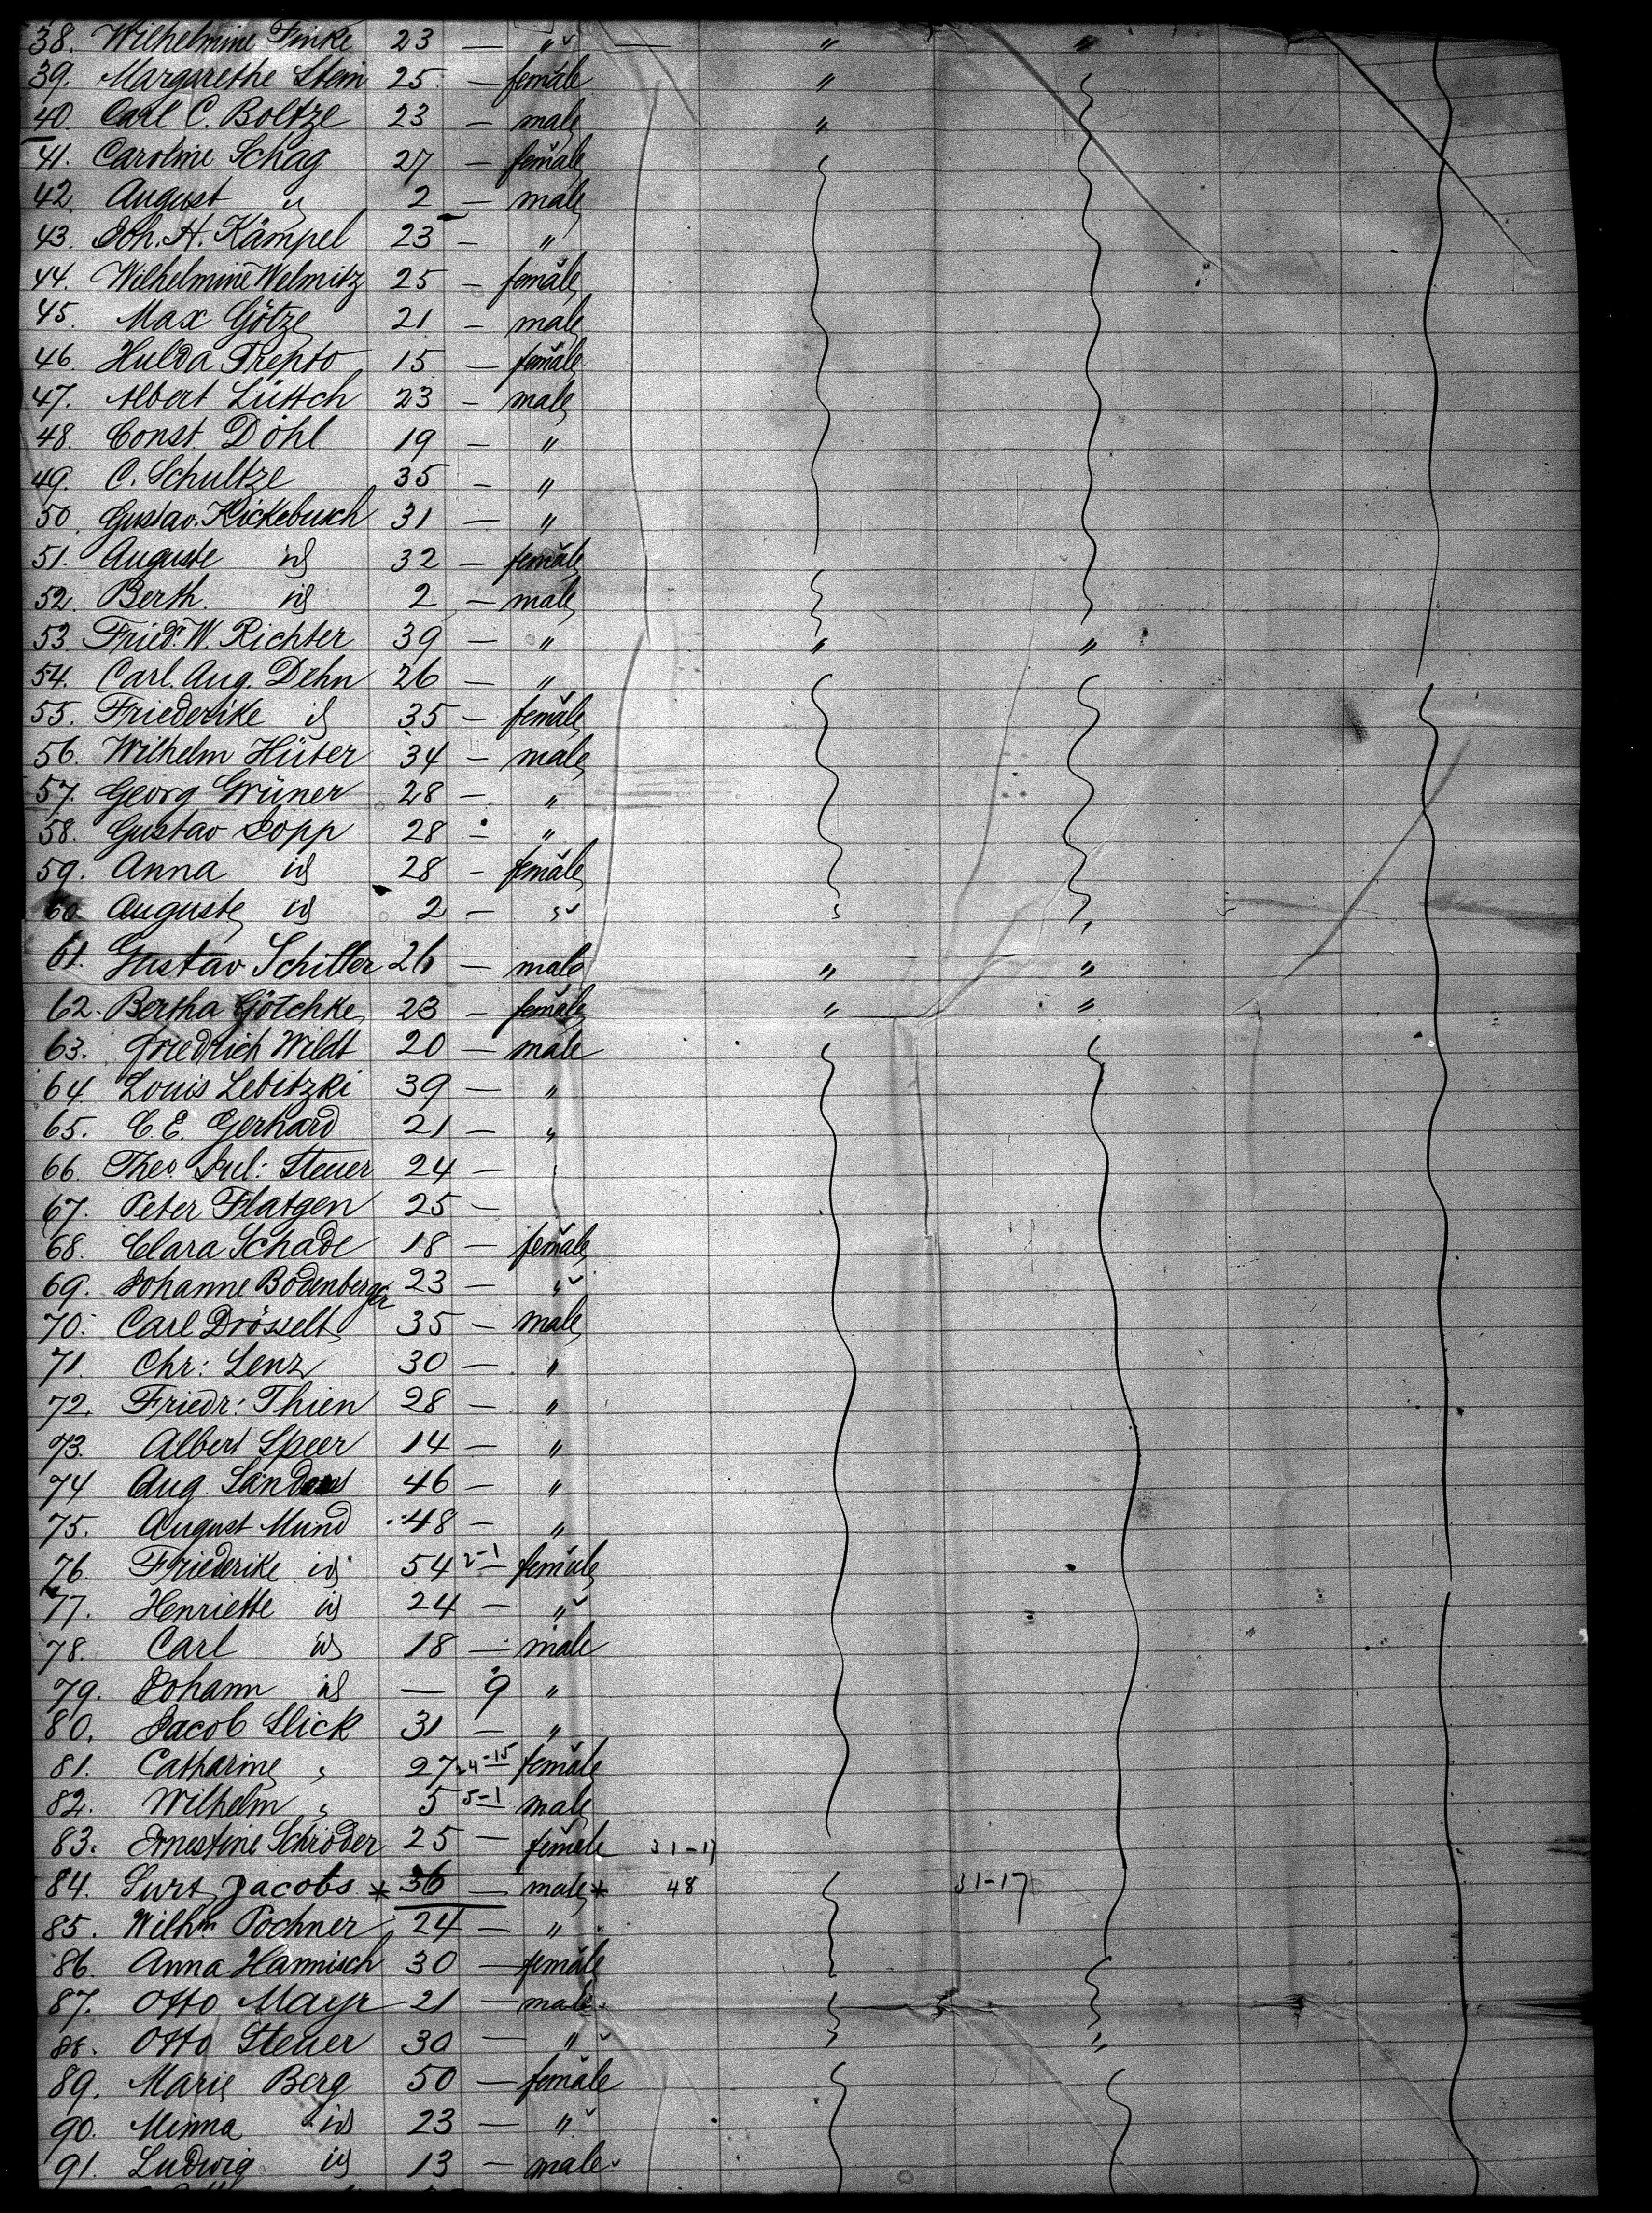 38. Wilhelmine Finke 23 — " — " "
39. Margarethe Stein 25 — female "
40. Carl C. Boltze 23 — male "
41. Caroline Schag 27 — female
42. August id 2 — male
43. Joh. H. Kämpel 23 — "
44. Wilhelmine Welmitz 25 — female
45. Max Götze 21 — male
46. Hulda Trepto 15 — female
47. Albert Lüttch 23 — male
48. Const. Döhl 19 — "
49. C. Schultze 35 — "
50. Gustav. Kickebusch 31 — "
51. Auguste id 32 — female
52. Berth. id 2 — male
53. Friedr. W. Richter 39 — " " "
54. Carl. Aug. Dehn 26 — "
55. Friederike id 35 — female
56. Wilhelm Hüter 34 — male
57. Georg Grüner 28 — "
58. Gustav Popp 28 — "
59. Anna id 28 — female
60. Auguste id 2 — "
61. Gustav Schiller 26 — male " "
62. Bertha Götchke 23 — female " "
63. Friedrich Wildt 20 — male
64. Louis Lebitzki 39 — "
65. C. E. Gerhard 21 — "
66. Theo. Jul: Steuer 24 —
67. Peter Flatgen 25 —
68. Clara Schade 18 — female
69. Johanne Bodenberger 23 — "
70. Carl Drösselt 35 — male
71. Chr: Lenz 30 — "
72. Friedr: Thien 28 — "
73. Albert Speer 14 — "
74 Aug. 46 — "
75. August Mund 48 — "
76. Friederike id 54 2-1 — female
77. Henriette id 24 — "
78. Carl id 18 — male
79. Johann id — 9 "
80. Jacob Slick 31 — "
81. Catharine " 27 24-15 female
82. Wilhelm " 5 5-1 male
83. Ernestine Schröder 25 — female 31-17
84. Jacobs * 36 — male * 48 31-17
85. Wilhm Pochner 24 — "
86. Anna Hannisch 30 — female
87. Otto Mayr 21 — male
88. Otto Steuer 30 — "
89. Marie Berg 50 — female
90. Minna id 23 — "
91. Ludwig id 13 — male